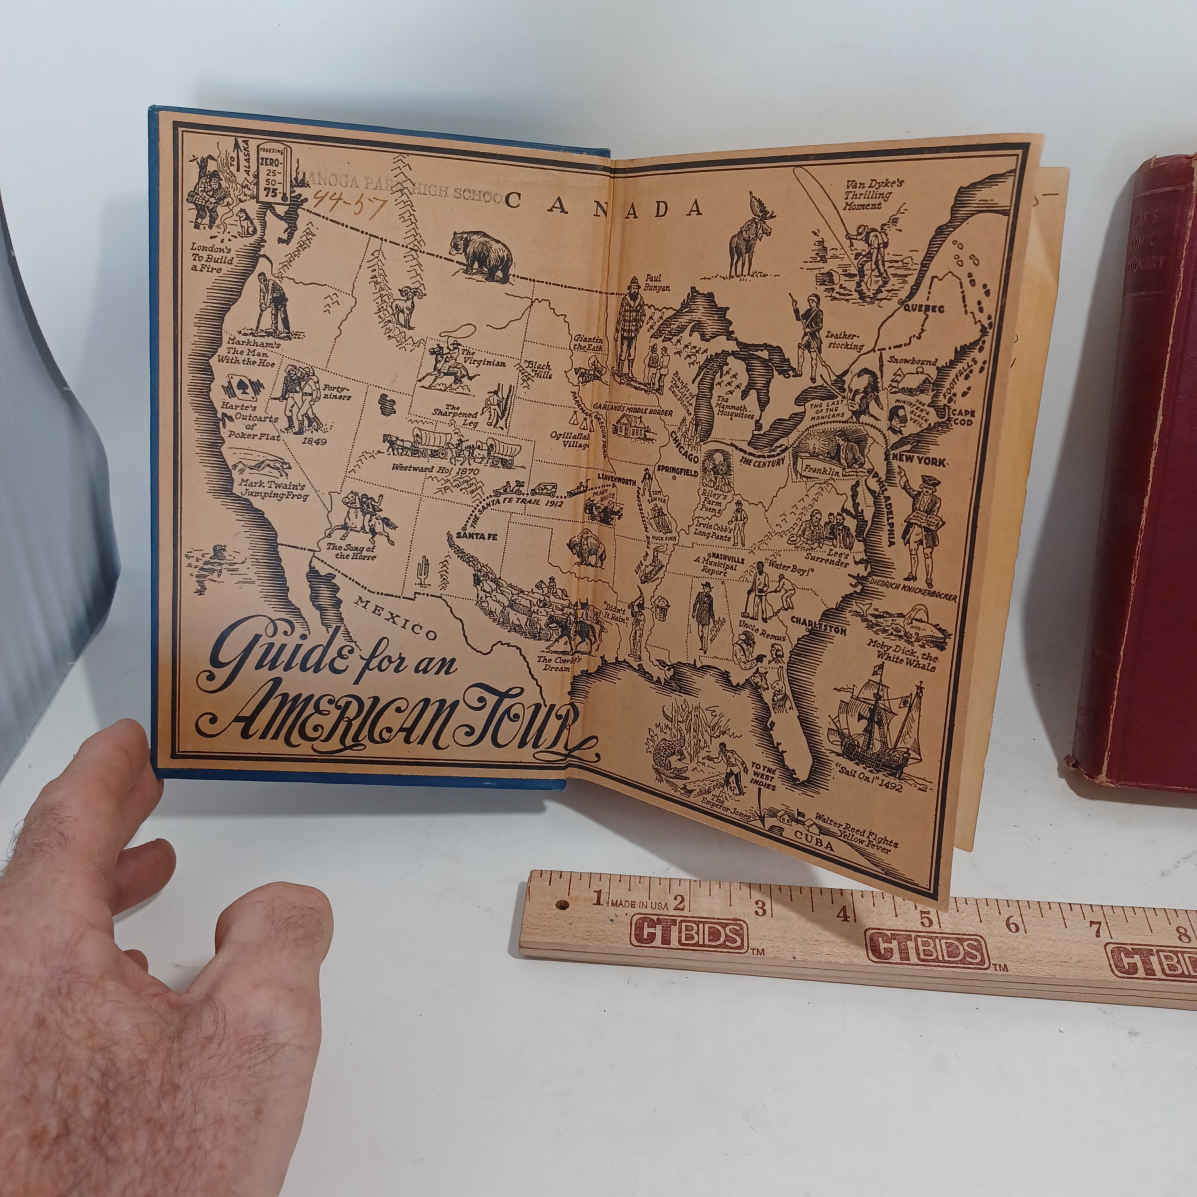 TO ALASKA
ZERO-
25-
50-
75
ANOGA PARK HIGH SCHOO
44-57
CANADA
London's
To Build
a Fire
Markham's
The Man
With the Hoe
Harte's
Outcasts
of
Poker Flat
Forty-
niners
1849
Mark Twain's
Jumping Frog
The
Virginian
The
Sharpened
Leg
Black
Hills
Westward Ho! 1870
Ogillallah
Village
Giants in
the Earth
THE SANTA FE TRAIL 1912
SANTA FE
LEAVENWORTH
The Song of
the Horse
MEXICO
The Cow-boy's
Dream
Guide for an
AMERICAN TOUR
Paul
Bunyan
Van Dyke's
Thrilling
Moment
QUEBEC
Leather-
stocking
Snowbound
CAPE
COD
The
Mammoth
Mosquitoes
THE LAST
OF THE
MOHICANS
GARLAND'S MIDDLE BORDER
CHICAGO
THE CENTURY
NEW YORK
SPRINGFIELD
Franklin
PHILADELPHIA
Riley's
Farm
Poems
TOM SAWYER
HUCK FINN
Irvin Cobb's
Long Pants
Lee's
Surrender
NASHVILLE
A Municipal
Report
"Water Boy!"
DIEDRICH KNICKERBOCKER
Uncle Remus
CHARLESTON
Moby Dick, the
White Whale
"Sail On!" 1492
TO THE
WEST
INDIES
The
Emperor Jones
CUBA
Walter Reed Fights
Yellow Fever
1 MADE IN USA 2 3 4 5 6 7 8
CTBIDS TM CTBIDS TM CTBIDS